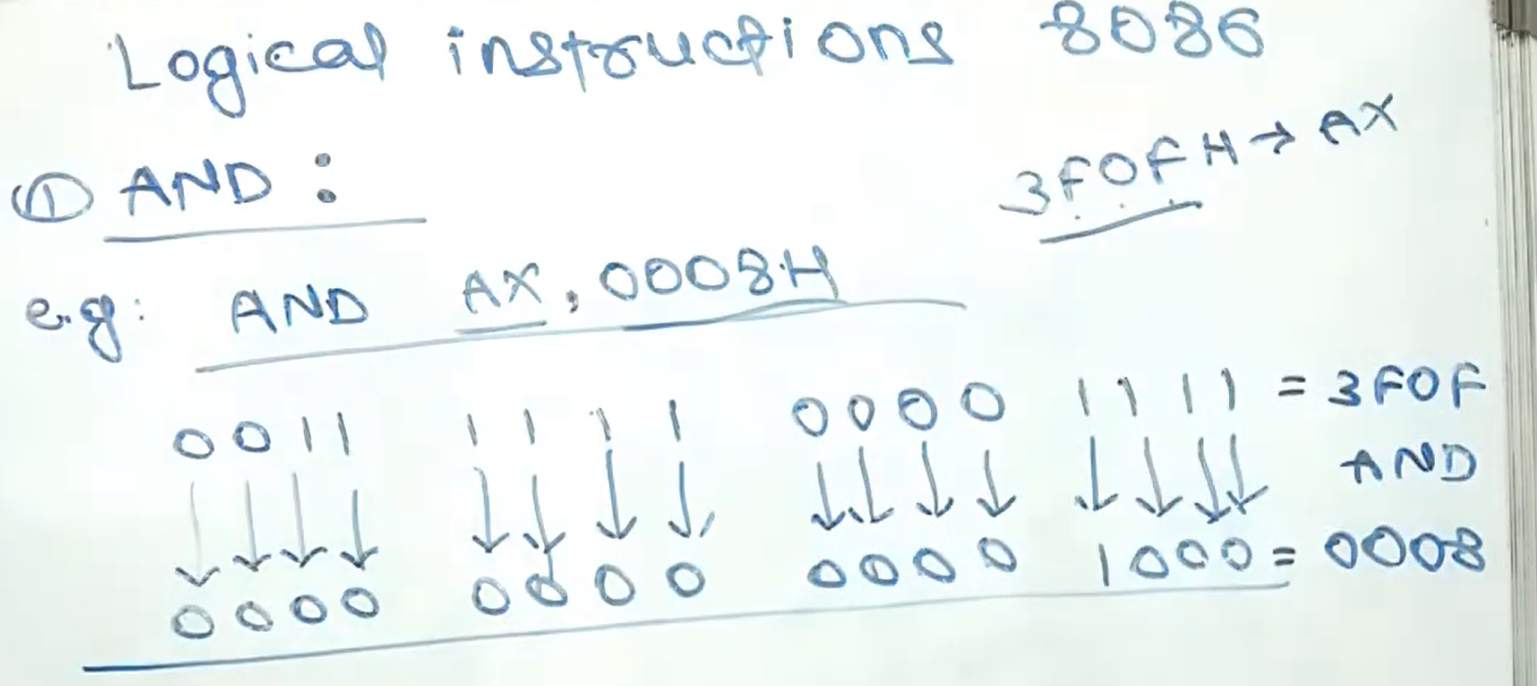 Logical instructions 8086
① AND :
3F0FH → AX
e.g: AND AX, 0008H
0011 1111 0000 1111 = 3F0F
↓↓↓↓ ↓↓↓↓ ↓↓↓↓ ↓↓↓↓ AND
0000 0000 0000 1000 = 0008